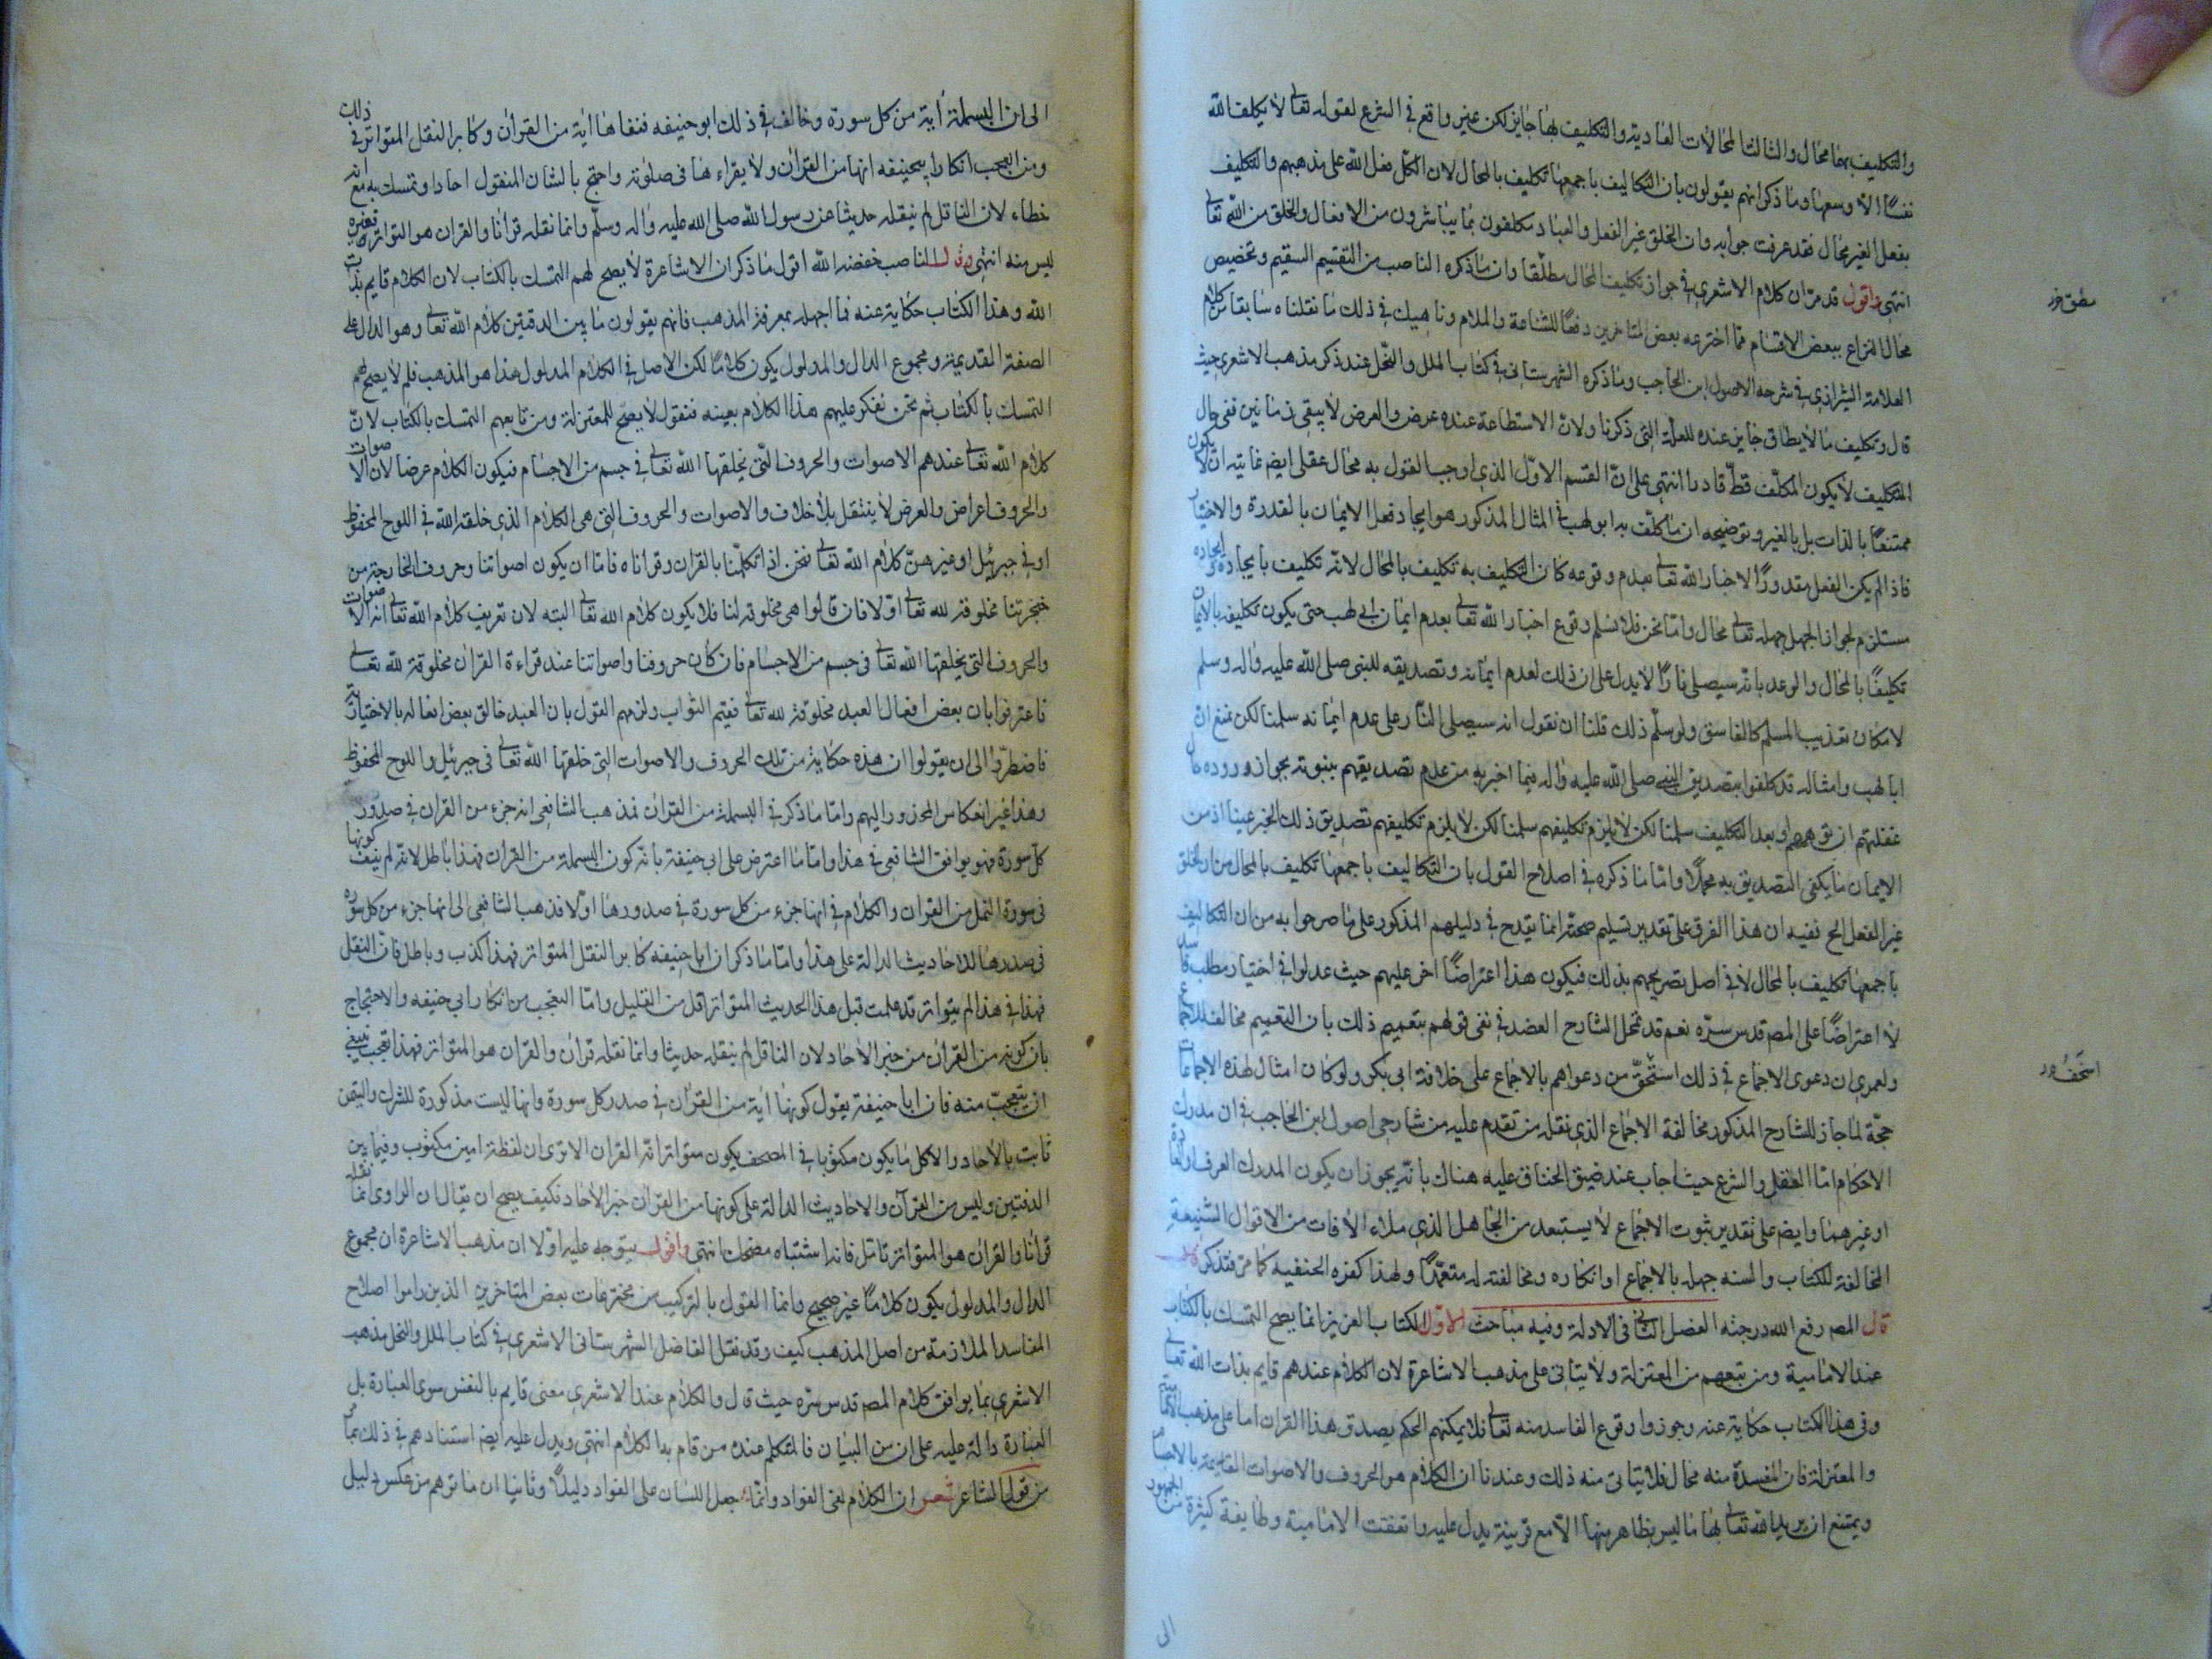 والتكليف بها محال والثالث المحالات العادية والتكليف بها جايز لكن غير واقع في الشرع لقوله تعالى لا يكلف الله
نفسًا الا وسعها وما ذكر انهم يقولون بان التكاليف باجمعها تكليف بالمحال لان الكل فعل الله على مذهبهم والتكليف
بفعل الغير محال فقد عرفت جوابه وان الخلق غير الفعل والعباد مكلفون بما يباشرون من الافعال والخلق من الله تعالى
انتهى واقول قد مر ان كلام الاشعري في جواز تكليف المحال مطلقا وان ما ذكره الناصب من التقسيم السقيم وتخصيص
محال النزاع ببعض الاقسام مما اخترعه بعض المتاخرين دفعًا للشناعة والملام وناهيك في ذلك ما نقلناه سابقا من كلام
العلامة الشيرازي في شرحه لاصول ابن الحاجب وما ذكره الشهرستاني في كتاب الملل والنحل عند ذكر مذهب الاشعري حيث
قال وتكليف ما لا يطاق جايز عنده للعلة التي ذكرنا ولان الاستطاعة عنده عرض والعرض لا يبقى زمانين ففي حال
التكليف لا يكون المكلف قط قادرا انتهى على ان القسم الاول الذي اوجب القول به محال عقلى ايضم غايته ان لا يكون
ممتنعًا بالذات بل بالغير وتوضيحه ان ما كلف به ابو لهب في المثال المذكور هو ايجاد فعل الايمان بالقدرة والاختيار
فاذا لم يكن الفعل مقدورًا لاخبار الله تعالى بعدم وقوعه كان التكليف به تكليف بالمحال لانه تكليف بايجاده وايجاده
مستلزم لجواز الجهل جهله تعالى محال واما نحن فلا نسلم وقوع اخبار الله تعالى بعدم ايمان ابي لهب حتى يكون تكليفه بالايمان
تكليفًا بالمحال والوعد بانه سيصلى نارًا لا يدل على ان ذلك لعدم ايمانه وتصديقه للنبي صلى الله عليه واله وسلم
لامكان تعذيب المسلم كالفاسق ولو سلم ذلك قلنا ان نقول انه سيصلى النار على عدم ايمانه سلمنا لكن نمنع ان
ابا لهب وامثاله قد كلفوا بتصديق النبي صلى الله عليه واله فيما اخبر به من عدم تصديقهم بنبوته بجواز وروده حال
غفلتهم او نومهم او بعد التكليف سلمنا لكن لا يلزم تكليفهم سلمنا لكن لا يلزم تكليفهم تصديق ذلك الخبر عينا اذ من
الايمان ما يكفى التصديق به مجملًا واما ما ذكره في اصلاح القول بان التكاليف باجمعها تكليف بالمحال من ان الخلق
غير الفعل الخ ففيه ان هذا الفرق على تقدير تسليم صحته انما يقدح في دليلهم المذكور على ما صرحوا به من ان التكاليف
باجمعها تكليف بالمحال لا في اصل تصريحهم بذلك فيكون هذا اعتراضًا اخر عليهم حيث عدلوا في اختيار مطلب فاسد
لا اعتراضًا على المصم قدس سره نعم قد تمحل الشارح العضد في نفى قولهم بتعميم ذلك بان التعميم مخالف للاجماع
ولعمري ان دعوى الاجماع في ذلك استخف من دعواهم بالاجماع على خلافة ابي بكر ولو كان امثال هذه الاجماعات
حجة لما جاز للشارح المذكور مخالفة الاجماع الذي نقله من تقدم عليه من شارحي اصول ابن الحاجب في ان مدرك
الاحكام اما العقل والشرع حيث اجاب عند ضيق الخناق عليه هناك بانه يجوز ان يكون المدرك العرف والعادة
او غيرهما وايضم على تقدير ثبوت الاجماع لا يستبعد من الجاهل الذي ملاء الافات من الاقوال الشنيعة
المخالفة للكتاب والسنه جهله بالاجماع او انكاره ومخالفته له متعمدًا ولهذا كفره الحنفيه كما مر فتذكر
قال المصم رفع الله درجته الفصل الثاني في الادلة وفيه مباحث الاول الكتاب العزيز انما يصح التمسك بالكتاب
عند الامامية ومن تبعهم من المعتزلة ولا يتاتى على مذهب الاشاعرة لان الكلام عندهم قايم بذات الله تعالى
وفى هذا الكتاب حكاية عنه وجوزوا وقوع الفاسد منه تعالى فلا يمكنهم الحكم بصدق هذا القران اما على مذهب الامامية
والمعتزلة فان المفسدة منه محال فلا يتاتى منه ذلك وعندنا ان الكلام هو الحروف والاصوات القايمة بالاجسام
ويمتنع ان يريد الله تعالى بها ما ليس بظاهر منها الا مع قرينة يدل عليه واتفقت الامامية وطايفة كثيرة من الجمهور
الى
الى ان البسملة اية من كل سورة وخالف في ذلك ابو حنيفه فنفاها اية من القران وكابر النقل المتواتر في ذلك
ومن العجب انكار ابي حنيفه انها من القران ولا يقراء ها فى صلوته واحتج بالشان المنقول احادا وتمسك به مع انه
خطاء لان الناقل لم ينقله حديثا عن رسول الله صلى الله عليه واله وسلم وانما نقله قرانا والقران هو المتواتر فغيره
ليس منه انتهى وقال الناصب خفضه الله اقول ما ذكر ان الاشاعرة لا يصح لهم التمسك بالكتاب لان الكلام قايم بذات
الله وهذا الكتاب حكاية عنه فما اجهله بمعرفة المذهب فانهم يقولون ما بين الدفتين كلام الله تعالى وهو الدال على
الصفة القديمة ومجموع الدال والمدلول يكون كلامًا لكن الاصل في الكلام المدلول هذا هو المذهب فلم لا يصح لهم
التمسك بالكتاب ثم نحن نفكر عليهم هذا الكلام بعينه فنقول لا يصح للمعتزلة ومن تابعهم التمسك بالكتاب لان
كلام الله تعالى عندهم الاصوات والحروف التى يخلقها الله تعالى في جسم من الاجسام فيكون الكلام عرضا لان الاصوات
والحروف اعراض والعرض لا ينتقل بلا خلاف والاصوات والحروف التى هى الكلام الذي خلقه الله في اللوح المحفوظ
او في جبرئيل او غيرهن كلام الله تعالى فنحن اذا تكلمنا بالقران وقراناه فاما ان يكون اصواتنا وحروف الخارجة من
حنجرتنا مخلوقة لله تعالى او لا فان قالوا هى مخلوقه لنا فلا يكون كلام الله تعالى البته لان تعريف كلام الله تعالى انه الاصوات
والحروف التى يخلقها الله تعالى فى جسم من الاجسام فان كان حروفنا واصواتنا عند قراءة القران مخلوقة لله تعالى
فاعترفوا بان بعض افعال العبد مخلوقة لله تعالى فقيم الثواب ولزمهم القول بان العبد خالق بعض افعاله بالاختيارية
فاضطروا الى ان يقولوا ان هذه حكاية من تلك الحروف والاصوات التى خلقها الله تعالى في جبرئيل واللوح المحفوظ
وهذا غير انعكاس المحذور اليهم واما ما ذكر في البسملة من القران فمذهب الشافعي انه جزء من القران في صدور
كل سورة فهو يوافق الشافعي في هذا واما ما اعترض على ابي حنيفة بانه كون البسملة من القران فهذا باطل لانه لم ينف كونها
فى سورة النمل من القران والكلام في انها جزء من كل سورة في صدورها او لا فذهب الشافعي الى انها جزء من كل سورة
فى صدرها للاحاديث الدالة على هذا واما ما ذكر ان ابا حنيفه كابر النقل المتواتر فهذا كذب وباطل فان النقل
فهذا في هذا لم يتواتر قد علمت قبل هذا الحديث المتواتر اقل من القليل واما التعجب من انكار ابي حنيفه والاحتجاج
بان كونه من القران من خبر الاحاد لان الناقل لم ينقله حديثا وانما نقله قران والقران هو المتواتر فهذا تعجب ينبغي
ان يتعجب منه فان ابا حنيفة يقول كونها اية من القران في صدر كل سورة وانها ليست مذكورة للتبرك والتيمن
ثابت بالاحاد والا كل ما يكون مكتوبا في المصحف يكون متواترا انه القران الا ترى ان لفظة امين مكتوب وفيما بين
الدفتين وليس من القرآن والاحاديث الدالة على كونها من القران خبر الاحاد فكيف يصح ان يقال ان الراوى انما نقله
قرانا والقران هو المتواتر تامل فانه اشتباه مضحك انتهى واقول يتوجه عليه اولا ان مذهب الاشاعرة ان مجموع
الدال والمدلول يكون كلامًا غير صحيح وانما القول بالتركيب من مخترعات بعض المتاخرين الذين راموا اصلاح
المفاسد الملازمة من اصل المذهب كيف وقد نقل الفاضل الشهرستانى الاشعري في كتاب الملل والنحل مذهب
الاشعري بما يوافق كلام المصم قدس سره حيث قال والكلام عند الاشعري معنى قايم بالنفس سوى العبارة بل
العبارة دالة عليه على ان من البيان فالمتكلم عنده من قام به الكلام انتهى ويدل عليه ايضم استنادهم في ذلك بما مر
من قول الشاعر شعر ان الكلام لفى الفواد وانما جعل اللسان على الفواد دليلًا وثانيا ان ما توهم من عكس دليل